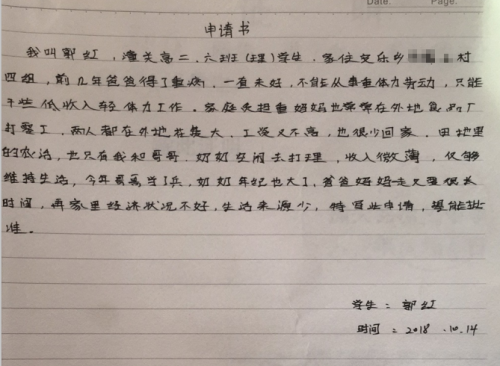 Date.　Page.
申请书
我叫郭虹，潼关高二、六班(理)学生，家住安乐乡村
四组，前几年爸爸得了重病，一直未好，不能从事重体力劳动，只能
干些低收入轻体力工作。家庭负担重妈妈也常常在外地食品厂
打零工，两人都在外地花费大、工资又不高，也很少回家，田地里
的农活，也只有我和哥哥、奶奶空闲去打理，收入微薄，仅够
维持生活，今年哥哥当了兵，奶奶年纪也大了，爸爸妈妈走又要很长
时间，再家里经济状况不好，生活来源少，特写此申请，望能批
准。
学生：郭虹
时间：2018.10.14